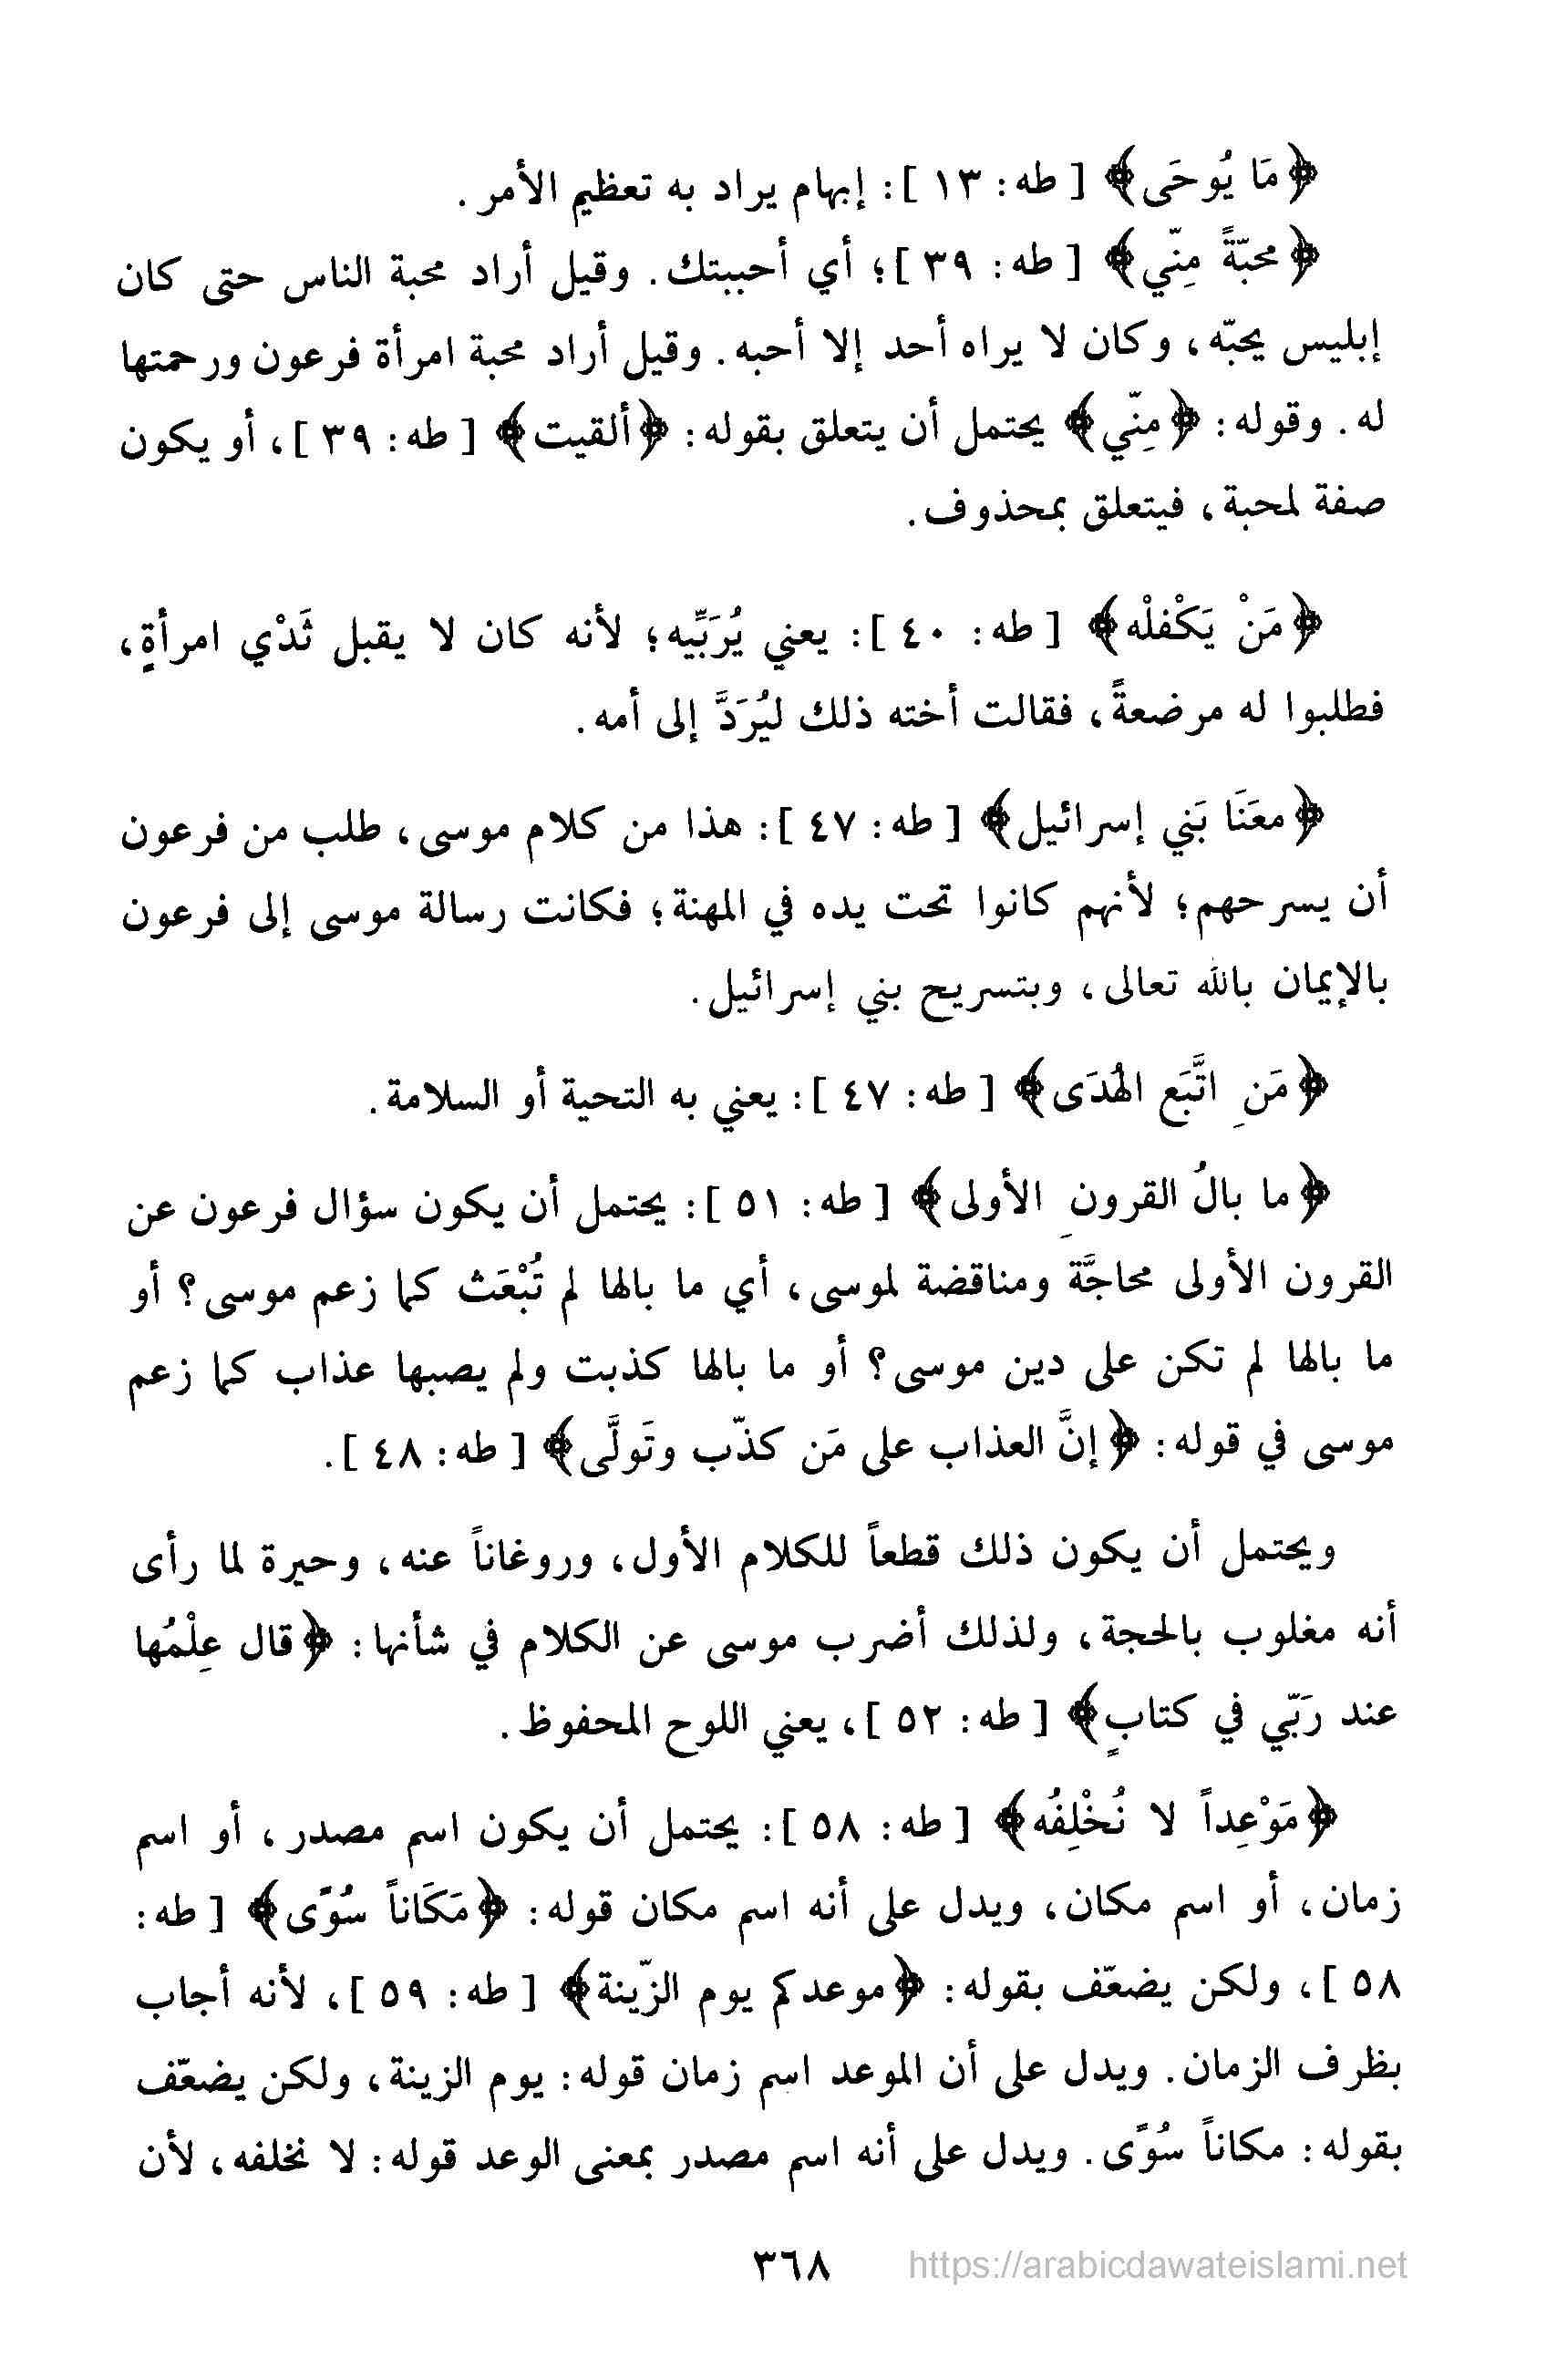 ﴿مَا يُوحَى﴾ [ طه: ١٣ ]: إبهام يراد به تعظيم الأمر.
﴿محبّةً مِنّي﴾ [ طه: ٣٩ ]؛ أي أحببتك. وقيل أراد محبة الناس حتى كان
إبليس يحبّه، وكان لا يراه أحد إلا أحبه. وقيل أراد محبة امرأة فرعون ورحمتها
له. وقوله: ﴿مِنّي﴾ يحتمل أن يتعلق بقوله: ﴿ألقيت﴾ [ طه: ٣٩ ]، أو يكون
صفة لمحبة، فيتعلق بمحذوف.
﴿مَنْ يَكْفلْه﴾ [ طه: ٤٠ ]: يعني يُرَبِّيه؛ لأنه كان لا يقبل ثَدْي امرأةٍ،
فطلبوا له مرضعةً، فقالت أخته ذلك ليُرَدَّ إلى أمه.
﴿معَنَا بَني إسرائيل﴾ [ طه: ٤٧ ]: هذا من كلام موسى، طلب من فرعون
أن يسرحهم؛ لأنهم كانوا تحت يده في المهنة؛ فكانت رسالة موسى إلى فرعون
بالإيمان بالله تعالى، وبتسريح بني إسرائيل.
﴿مَنِ اتَّبَع الهُدَى﴾ [ طه: ٤٧ ]: يعني به التحية أو السلامة.
﴿ما بالُ القرونِ الأولى﴾ [ طه: ٥١ ]: يحتمل أن يكون سؤال فرعون عن
القرون الأولى محاجَّة ومناقضة لموسى، أي ما بالها لم تُبْعَث كما زعم موسى؟ أو
ما بالها لم تكن على دين موسى؟ أو ما بالها كذبت ولم يصبها عذاب كما زعم
موسى في قوله: ﴿إنَّ العذاب على مَن كذّب وتَولَّى﴾ [ طه: ٤٨ ].
ويحتمل أن يكون ذلك قطعاً للكلام الأول، وروغاناً عنه، وحيرة لما رأى
أنه مغلوب بالحجة، ولذلك أضرب موسى عن الكلام في شأنها: ﴿قال عِلْمُها
عند رَبّي في كتابٍ﴾ [ طه: ٥٢ ]، يعني اللوح المحفوظ.
﴿مَوْعِداً لا نُخْلِفُه﴾ [ طه: ٥٨ ]: يحتمل أن يكون اسم مصدر، أو اسم
زمان، أو اسم مكان، ويدل على أنه اسم مكان قوله: ﴿مَكَاناً سُوًى﴾ [ طه:
٥٨ ]، ولكن يضعّف بقوله: ﴿موعدكم يوم الزّينة﴾ [ طه: ٥٩ ]، لأنه أجاب
بظرف الزمان. ويدل على أن الموعد اسم زمان قوله: يوم الزينة، ولكن يضعّف
بقوله: مكاناً سُوًى. ويدل على أنه اسم مصدر بمعنى الوعد قوله: لا نخلفه، لأن
٣٦٨
https://arabicdawateislami.net